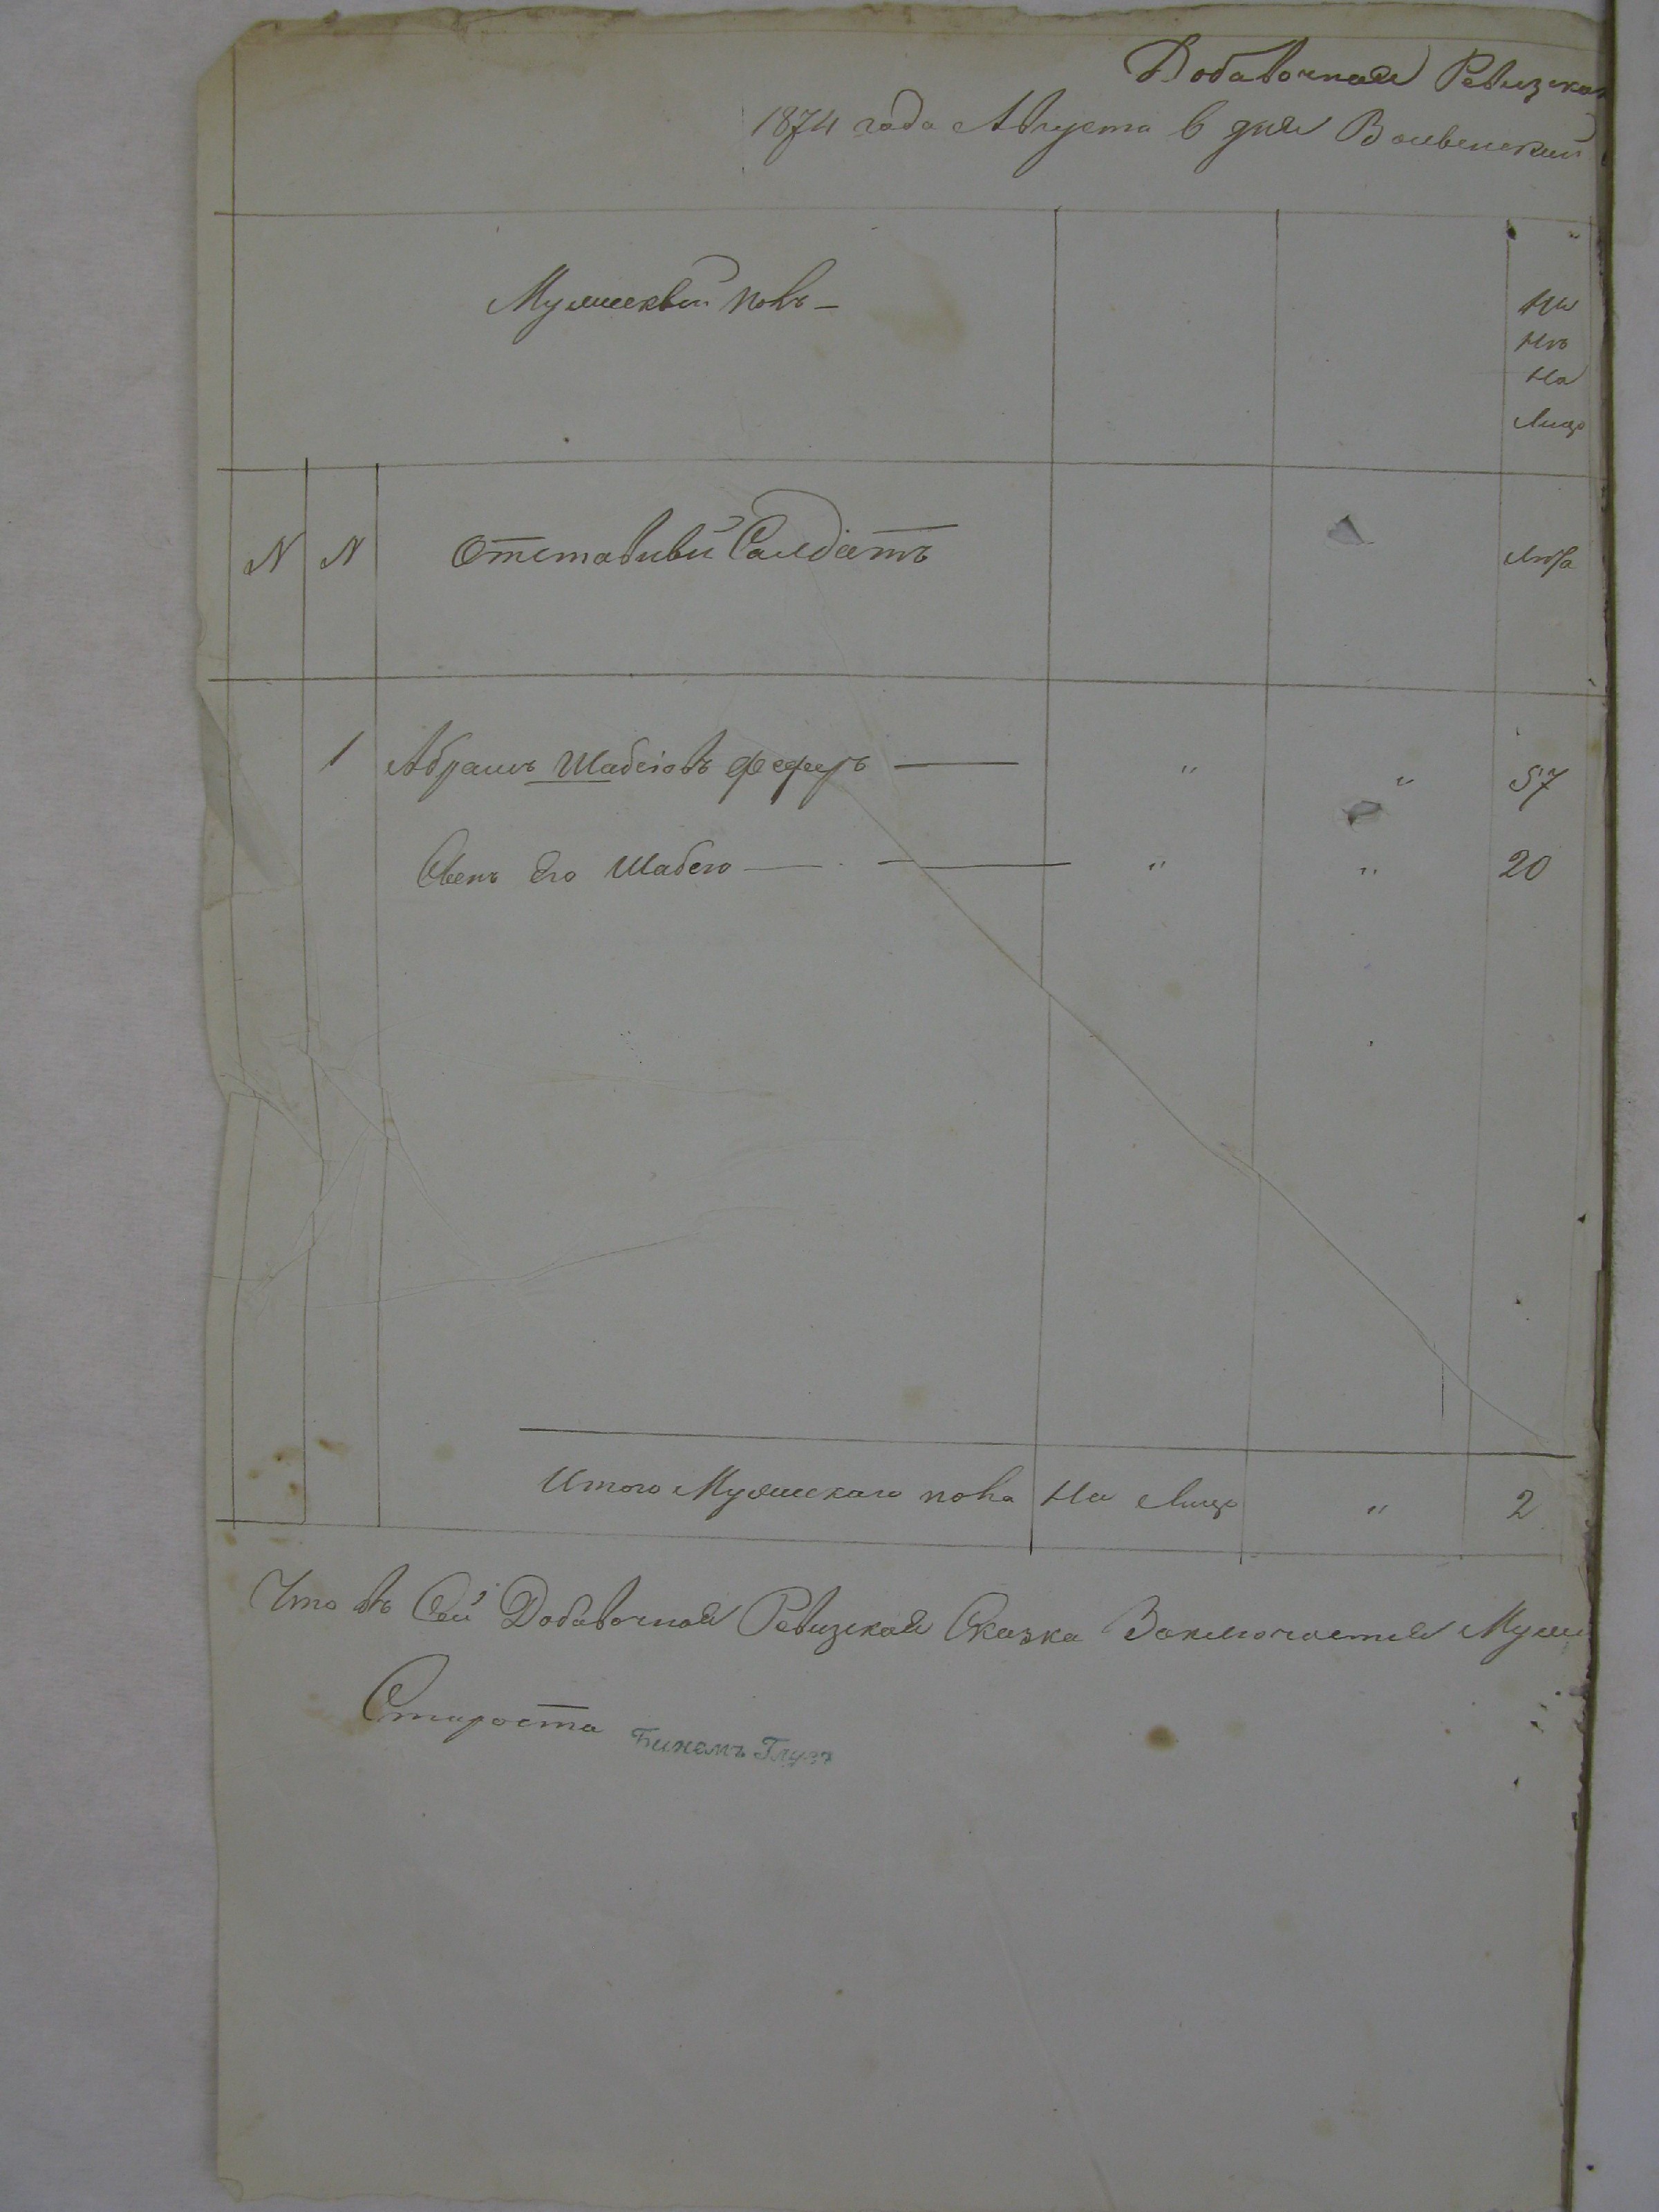 Добавочная Ревизская
1874 года Августа 6 дня
Мужеквй полъ —
На
Лицо
N N Отставнвй Салдатъ Лѣта
1 Абрамъ Шабсіовъ феферъ — " " 57
Свенъ Его Шабсіо — — " " 20
Итого Мужескаго пола На Лицо " 2
Что въ Сей Добавочной Ревизкай Сказка Заключается Муже
Староста Бихемъ Глузъ